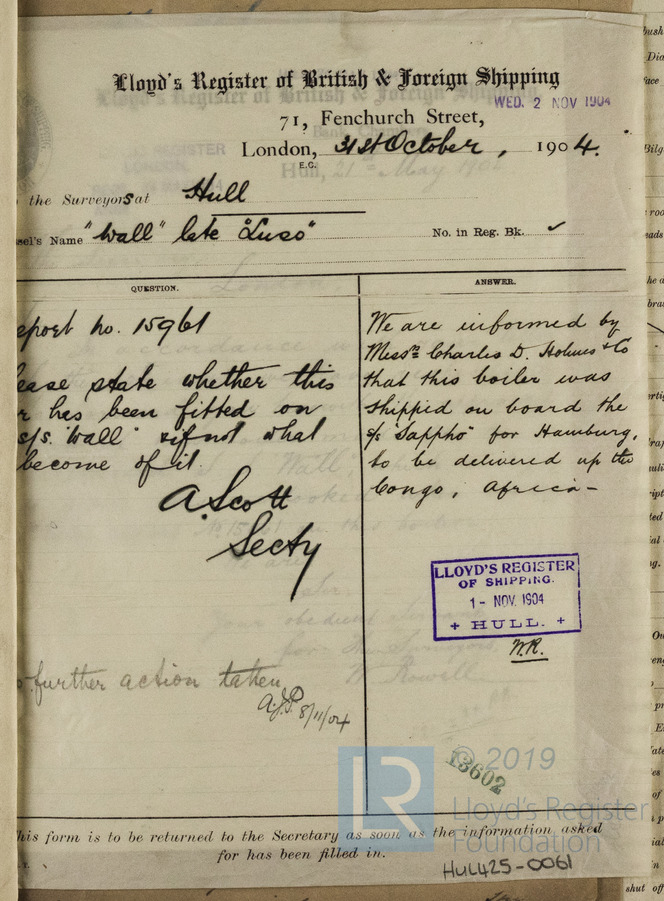 Lloyd's Register of British & Foreign Shipping
WED. 2 NOV 1904
71, Fenchurch Street,
London, 31st October, 1904.
E.C.
the Surveyors at Hull
sel's Name "Wall" late "Luso" No. in Reg. Bk. ✓
QUESTION.
eport no. 15961
ease state whether this
r has been fitted on
s/s. "Wall" & if not what
become of it.
A. Scott
Secty
further action taken
A.J.P. 8/11/04
ANSWER.
We are informed by
Messrs Charles D. Holmes & Co
that this boiler was
shipped on board the
s/s "Sappho" for Hamburg,
to be delivered up the
Congo, Africa –
LLOYD'S REGISTER
OF SHIPPING.
1 - NOV. 1904
+ HULL. +
W.R.
13602
© 2019
LR
Lloyd's Register
Foundation
his form is to be returned to the Secretary as soon as the information asked
for has been filled in.
HUL425-0061
shut off